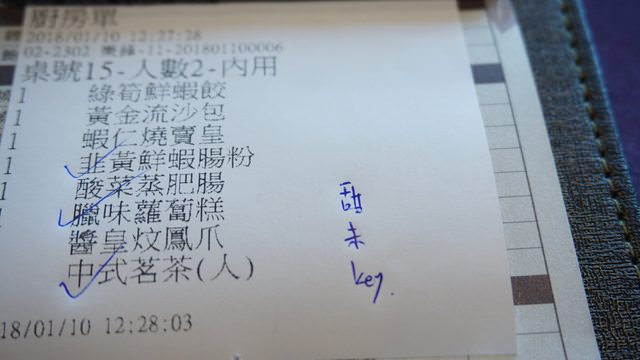 廚房單
2018/01/10 12:27:28
02-2302 樂錄-11-201801100006
桌號15-人數2-內用
1 綠筍鮮蝦餃
1 黃金流沙包
1 蝦仁燒賣皇
1 韭黃鮮蝦腸粉
1 酸菜蒸肥腸
1 臘味蘿蔔糕
醬皇炆鳳爪
中式茗茶(人)
18/01/10 12:28:03
甜
未
key.